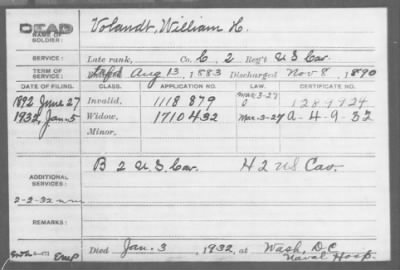 DEAD
NAME OF SOLDIER: Volandt, William H.
SERVICE: Late rank, Co. C, 2 Reg't U S Cav.
TERM OF SERVICE: Enlisted Aug 13, 1883 Discharged Nov 8, 1890
DATE OF FILING. CLASS. APPLICATION NO. LAW. CERTIFICATE NO.
1892 June 27 Invalid, 1118 879 Mar-3-27
1932, Jan. 5 Widow, 1710432 Mar-3-27 A-4-9-32
Minor,
ADDITIONAL SERVICES: B 2 U.S. Cav. H 2 US Cav.
2-2-32
REMARKS:
Died Jan. 3, 1932, at Wash. D C
Naval Hosp.